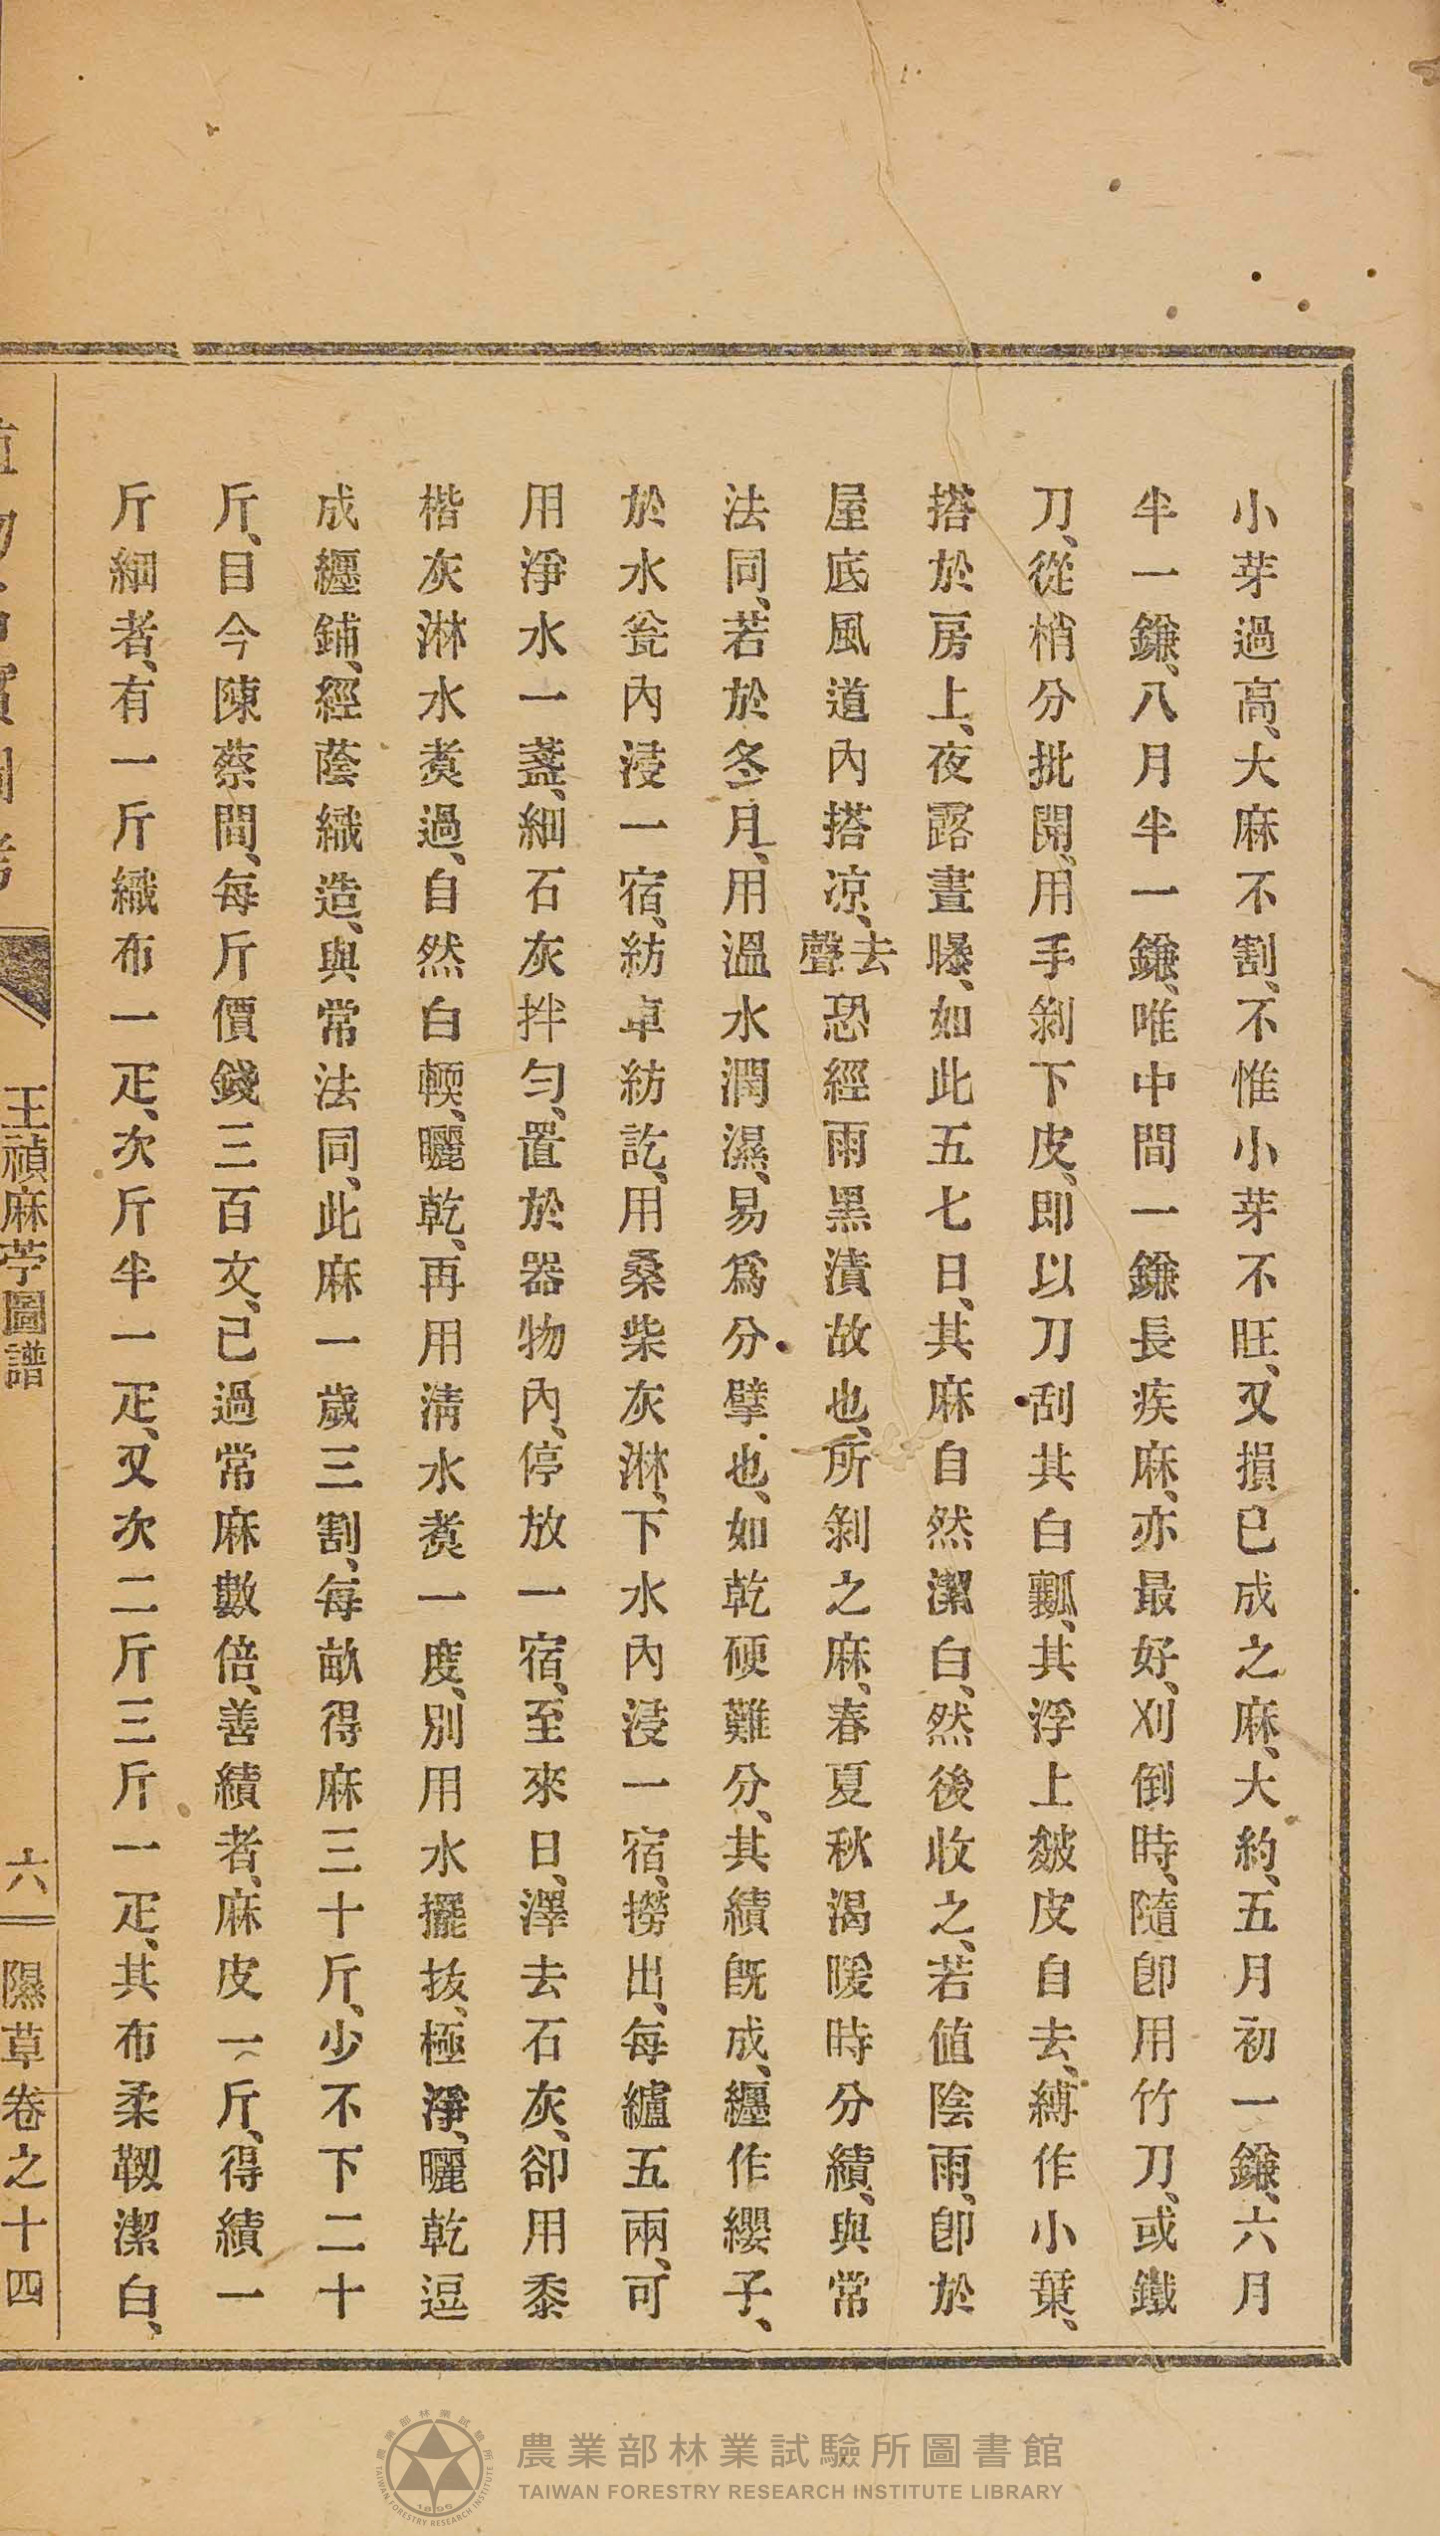 小芽過高、大麻不割、不惟小芽不旺、又損已成之麻、大約、五月初一鎌、六月
半一鎌、八月半一鎌、唯中間一鎌長疾麻、亦最好、刈倒時、隨卽用竹刀、或鐵
刀、從梢分批開、用手剝下皮、即以刀刮其白瓤、其浮上皴皮自去、縛作小葉、
搭於房上、夜露晝曝、如此五七日、其麻自然潔白、然後收之、若値陰雨、卽於
屋底風道內搭凉、去聲恐經雨黑漬故也、所剝之麻、春夏秋溫暖時分績、與常
法同、若於冬月、用溫水潤濕、易爲分擘也、如乾硬難分、其績旣成、纒作纓子、
於水瓮內浸一宿、紡車紡訖、用桑柴灰淋、下水內浸一宿、撈出、每纑五兩、可
用淨水一盞、細石灰拌勻、置於器物內、停放一宿、至來日、澤去石灰、卻用黍
楷灰淋水煑過、自然白輭、曬乾、再用淸水煑一度、別用水擺拔、極淨、曬乾逗
成纒鋪、經蔭織造、與常法同、此麻一歲三割、每畝得麻三十斤、少不下二十
斤、目今陳蔡間、每斤價錢三百文、已過常麻數倍、善績者、麻皮一斤、得績一
斤細者、有一斤織布一疋、次斤半一疋、又次二斤三斤一疋、其布柔靱潔白、
王禎麻苧圖譜
六
隰草卷之十四
農業部林業試驗所圖書館
TAIWAN FORESTRY RESEARCH INSTITUTE LIBRARY